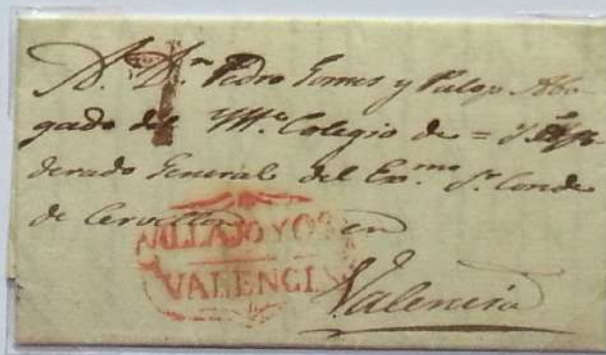 A. Dn. Pedro Gomes y Palop Abo-
gado del Ille. Colegio de = y Apo-
derado General del Exmo. Sr. Conde
de Cervellon en
VALLAJOYOSA
VALENCIA
Valencia